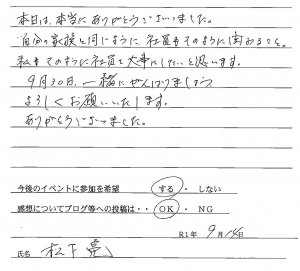 本日は、本当にありがとうございました。
自分の家族と同じように社員もそのように関わること。
私もそのように社員を大事にしたいと思います。
9月30日、一緒にがんばりましょう
よろしくお願いいたします。
ありがとうございました。
今後のイベントに参加を希望 する ・ しない
感想についてブログ等への投稿は・・ OK ・ NG
R1年 9月 14日
氏名 松下 亮